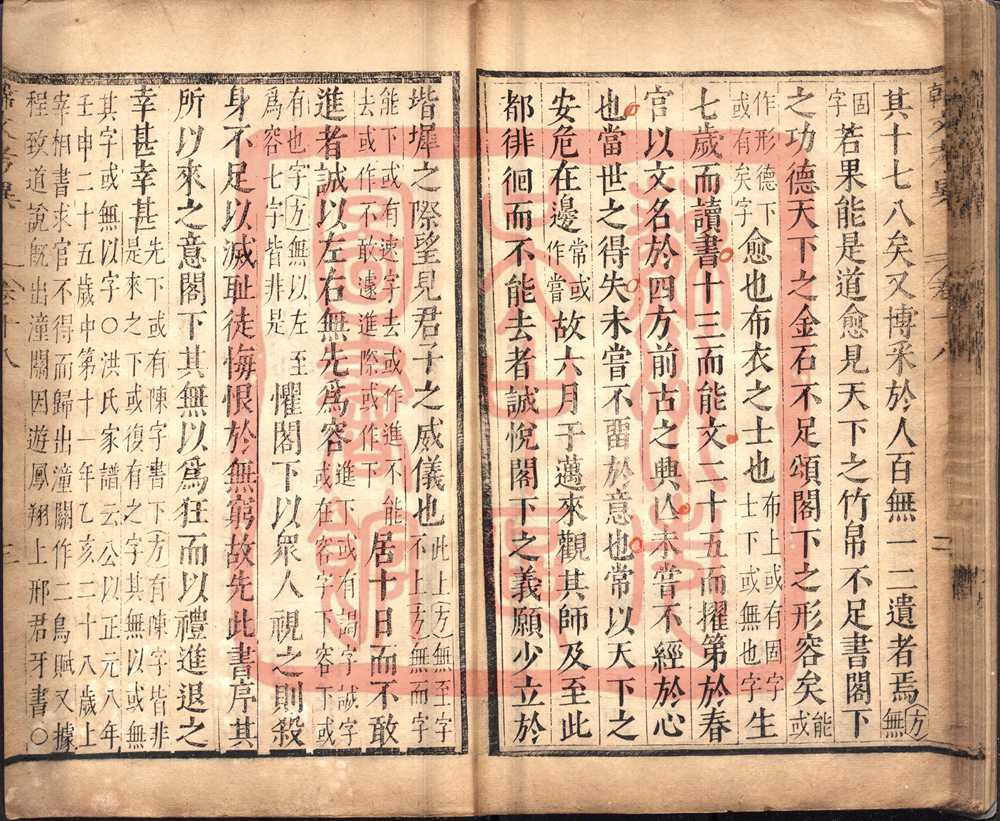 其十七八矣又博采於人百無一二遺者焉方無
固字若果能是道愈見天下之竹帛不足書閣下
之功德天下之金石不足頌閣下之形容矣能或
作形德下或有矣字愈也布衣之士也布上或有固字士下或無也字生
七歲而讀書十三而能文二十五而擢第於春
官以文名於四方前古之興亾未嘗不經於心
也當世之得失未嘗不畱於意也常以天下之
安危在邊常或作嘗故六月于邁來觀其師及至此
都徘徊而不能去者誠悅閣下之義願少立於
堦墀之際望見君子之威儀也此上方無至字不上方無而字
能下或有速字去或作進不能去或作不敢遽進際或作下居十日而不敢
進者誠以左右無先爲容進下或有謁字誠字或在容字下容下或
有也字方無以左至爲容七字皆非是懼閣下以衆人視之則殺
身不足以滅耻徒悔恨於無窮故先此書序其
所以來之意閣下其無以爲狂而以禮進退之
幸甚幸甚先下或有陳字書下方有陳字皆非是來之下或復有之字其無以或無
其字或無以字○洪氏家譜云公以正元八年
壬申二十五歲中第十一年乙亥二十八歲上
宰相書求官不得而歸出潼關作二鳥賦又據
程致道說旣出潼關因遊鳳翔上邢君牙書○